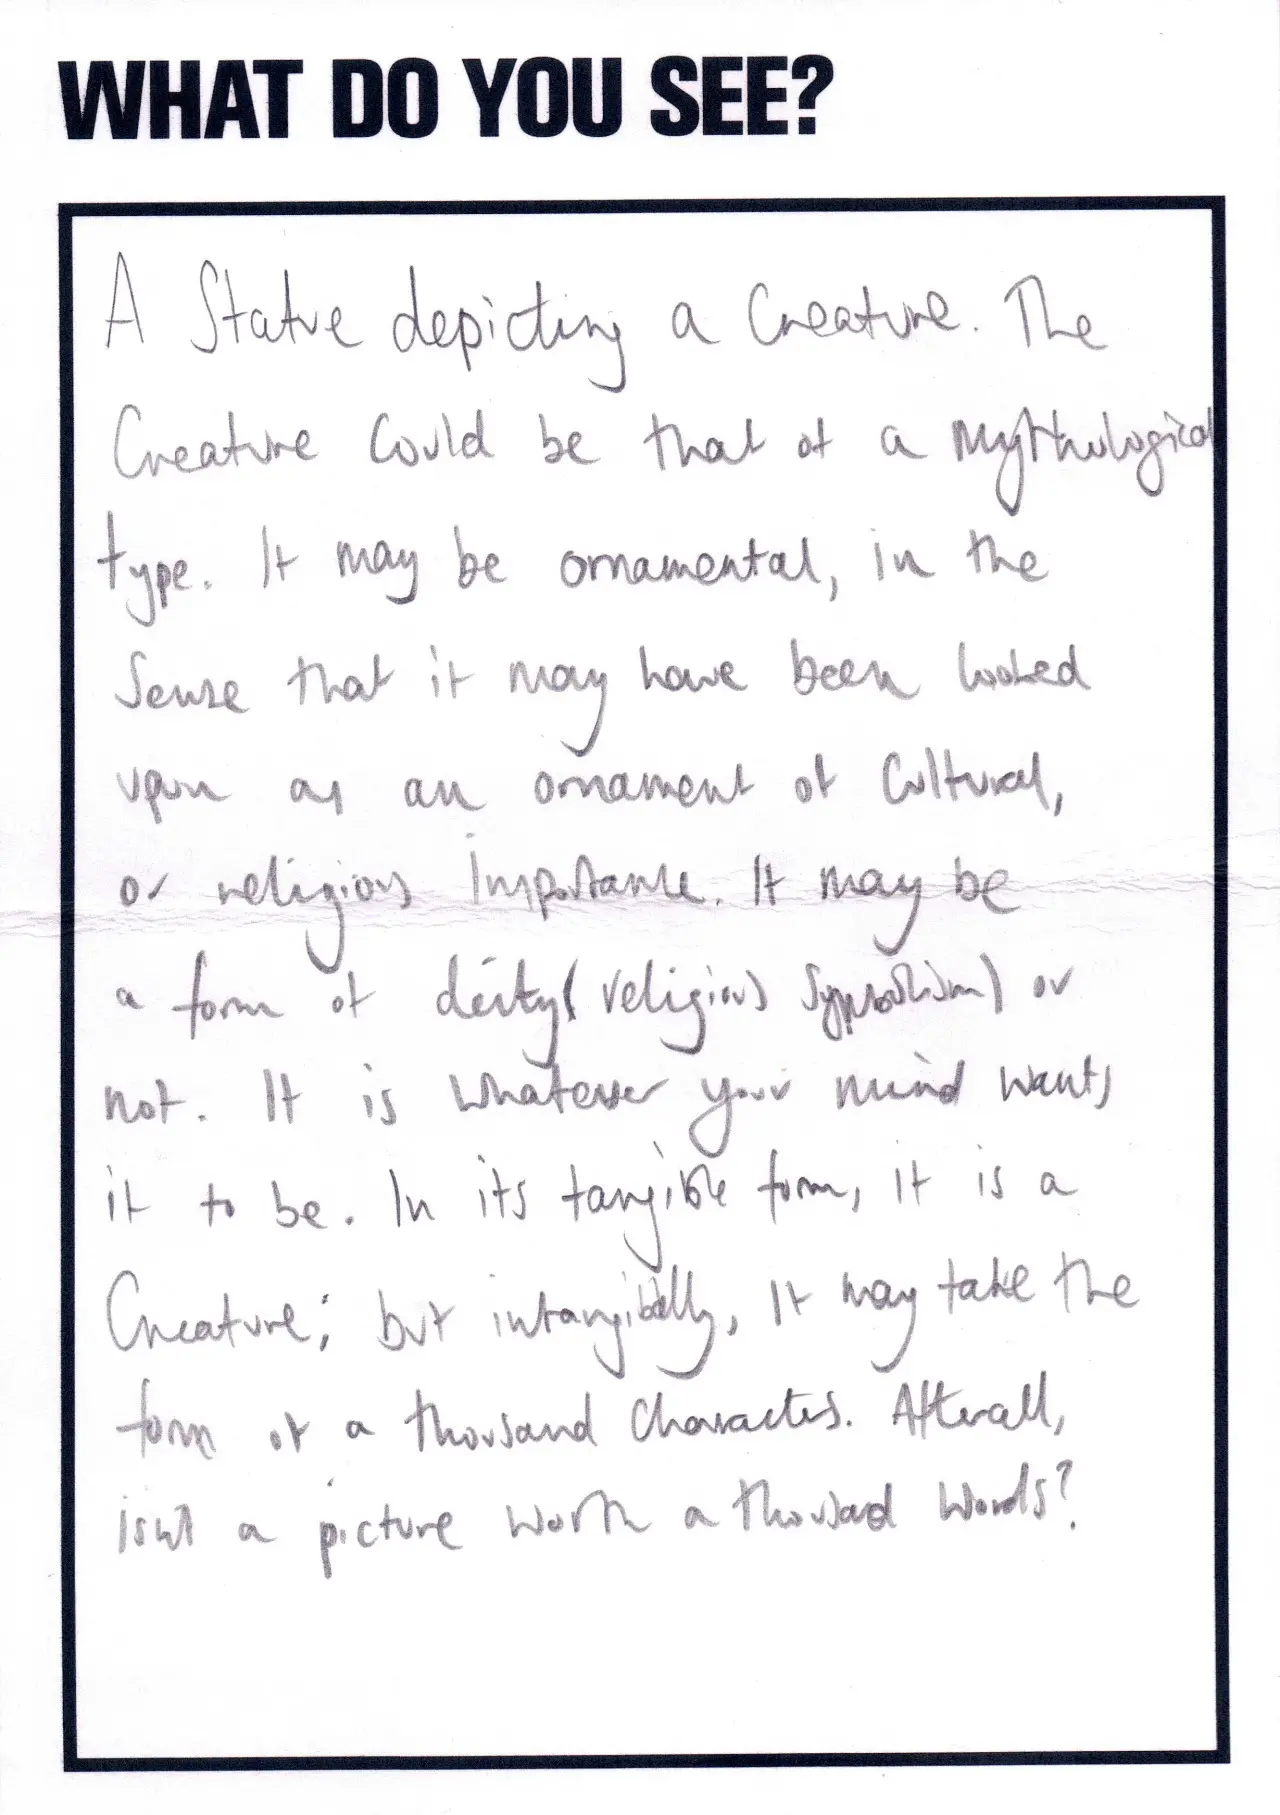 WHAT DO YOU SEE?
A Statue depicting a Creature. The
Creature Could be that of a Mythological
type. It may be ornamental, in the
Sense that it may have been looked
upon as an ornament of Cultural,
or religious Importance. It may be
a form of deity (religious Sympolism) or
not. It is whatever your mind wants
it to be. In its tangible form, it is a
Creature; but intangibally, It may take the
form of a thousand Characters. Afterall,
isnt a picture worth a thousad words?